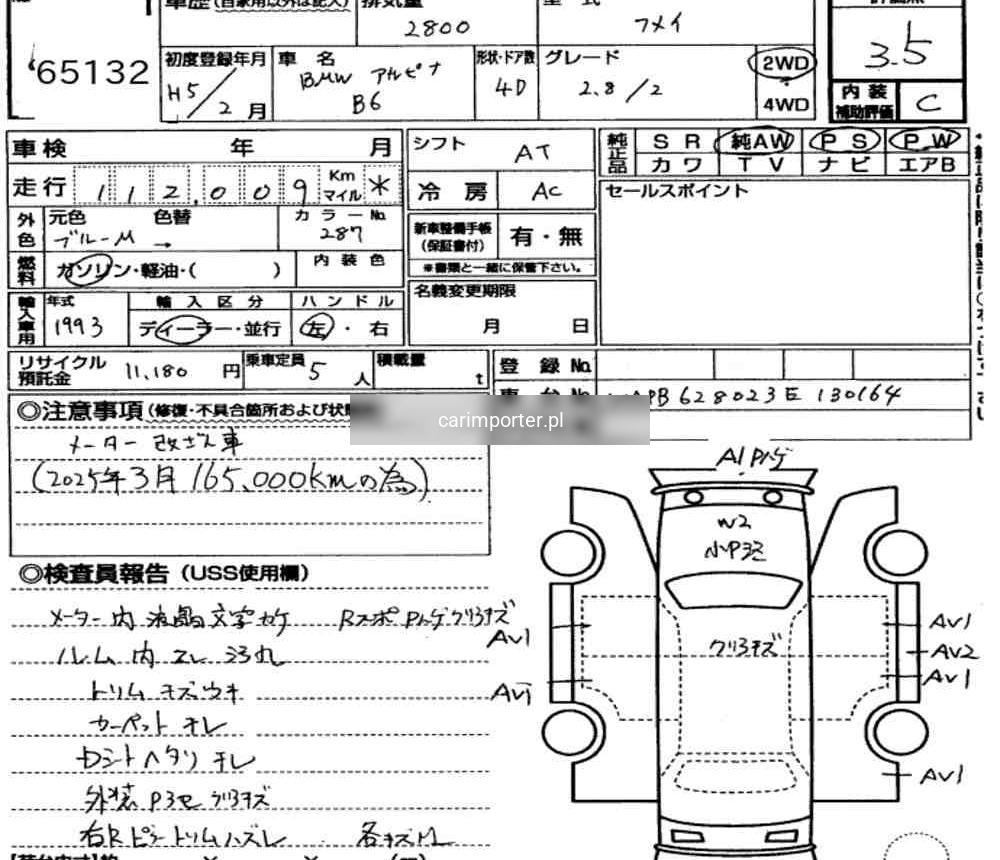 車歴 (自家用以外は記入)
排気量 2800
型式 フメイ
評価点 3.5
65132
初度登録年月 H5/2月
車名 BMW アルピナ B6
形状・ドア数 4D
グレード 2.8/2
2WD
4WD
内装補助評価 C
車検 年 月
走行 112,009 Km マイル *
シフト AT
冷房 AC
純正品 SR 純AW PS PW
カワ TV ナビ エアB
セールスポイント
外色 元色 ブルーM → 色替 カラーNo. 287
燃料 ガソリン・軽油・( ) 内装色
新車整備手帳(保証書付) 有・無
※書類と一緒に保管下さい。
輸入車用 年式 1993 輸入区分 ディーラー・並行 ハンドル 左・右
名義変更期限 月 日
リサイクル預託金 11,180円 乗車定員 5人 積載量 t
登録No.
車台No. APB628023E130164
carimporter.pl
◎注意事項(修復・不具合箇所および状
メーター改ざん車
(2025年3月 165,000kmの為)
◎検査員報告(USS使用欄)
メーター内 液晶文字カケ Rスポ Pハゲ クリアキズ
ルーム内 スレ 汚れ
トリム キズ ウキ
カーペット キレ
Dシート ヘタリ キレ
外装 クリアキズ
右Rピラートリムハズレ 各キズM
A1 Pハゲ
W2
クリアキズ
AV1
AV1
AV1
AV2
AV1
AV1